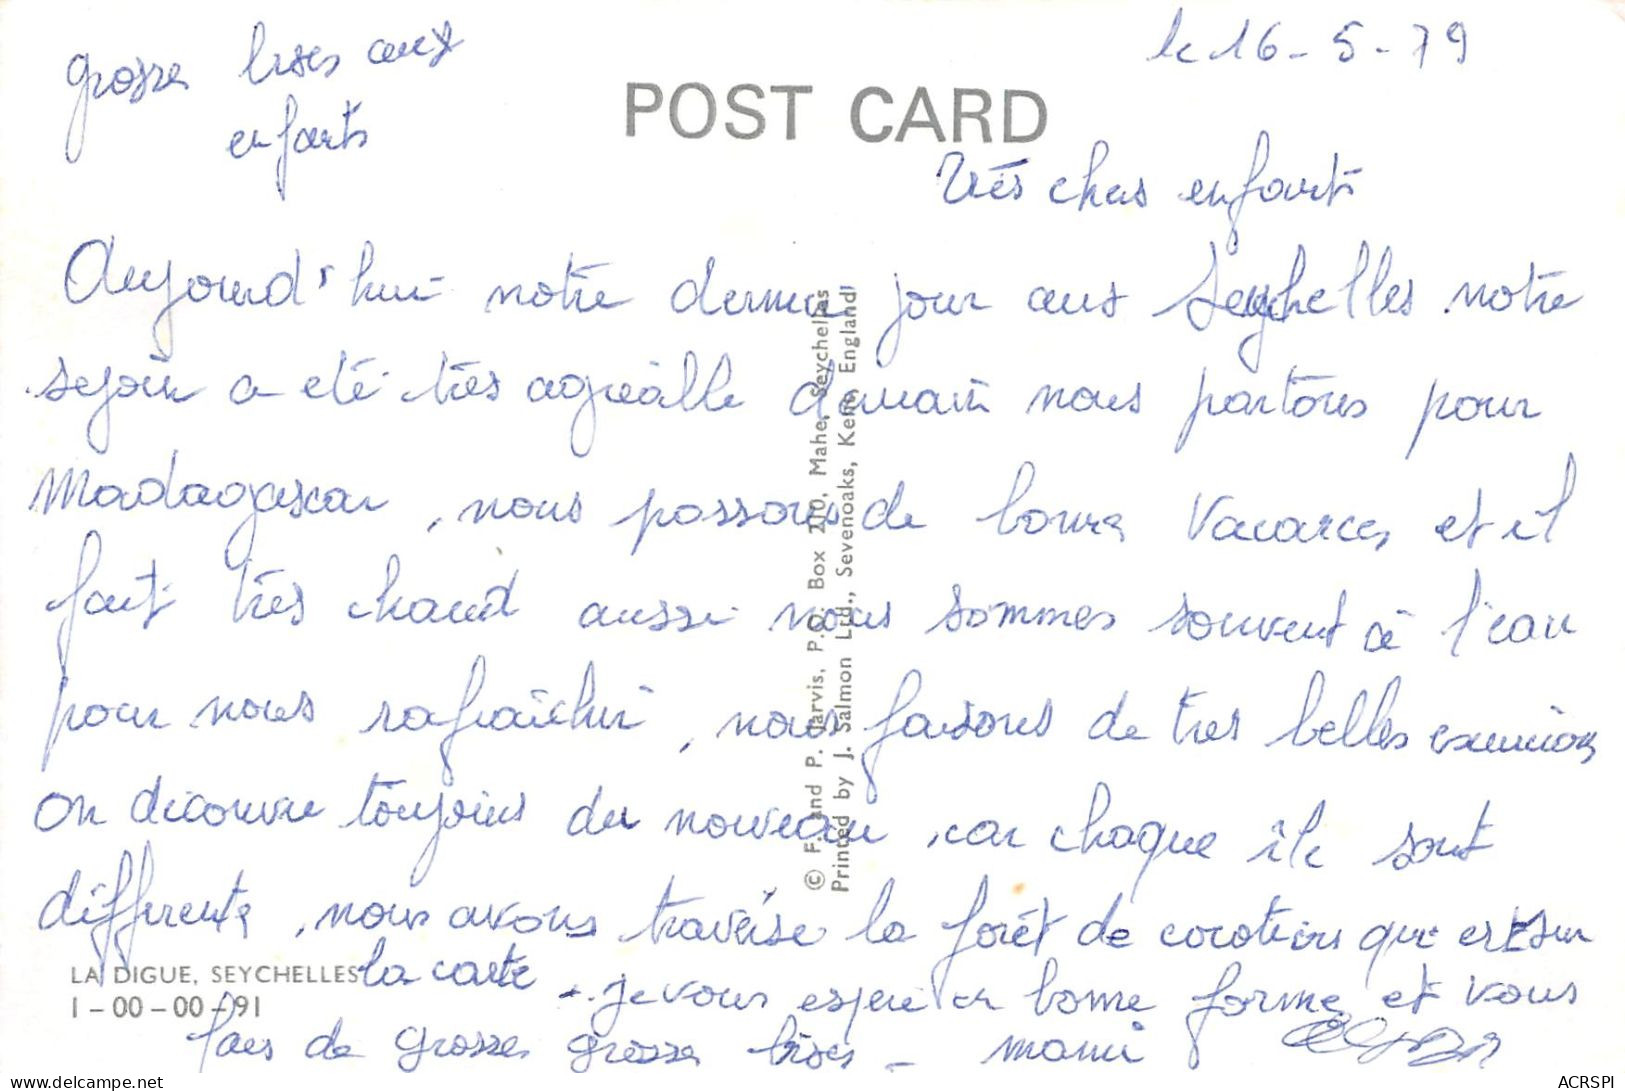 le 16-5-79
grosses bises aux
enfants
POST CARD
Très chers enfants
Aujourd'hui notre dernier jour aux Seychelles notre
sejour a eté très agréable demain nous partons pour
Madagascar, nous passons de bonnes vacances, et il
fait très chaud aussi nous sommes souvent à l'eau
pour nous rafraîchir, nous faisons de tres belles excursions
on découvre toujours du nouveau, car chaque île sont
differents, nous avons traversé la forêt de cocotiers qui est sur
la carte. je vous espere en bonne forme et vous
fais de grosses grosses bises - mami
LA DIGUE, SEYCHELLES
1-00-00-91
© F. and P. Jarvis, P.O. Box 210, Mahe, Seychelles
Printed by J. Salmon Ltd., Sevenoaks, Kent, England
delcampe.net
ACRSPI